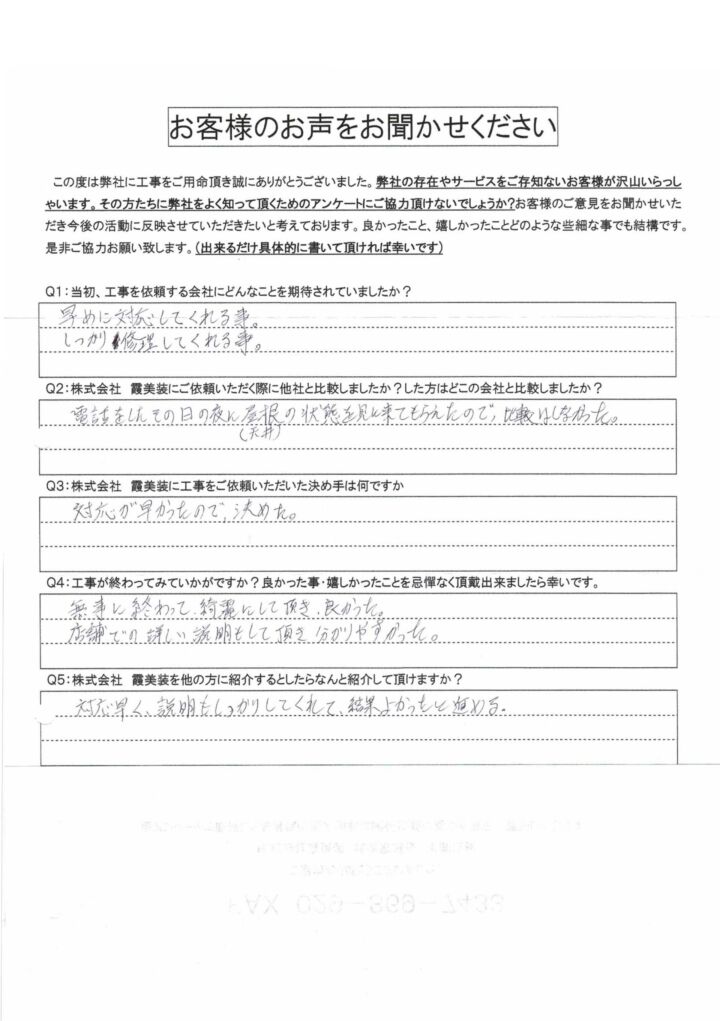 お客様のお声をお聞かせください
この度は弊社に工事をご用命頂き誠にありがとうございました。弊社の存在やサービスをご存知ないお客様が沢山いらっし
ゃいます。その方たちに弊社をよく知って頂くためのアンケートにご協力頂けないでしょうか?お客様のご意見をお聞かせいた
だき今後の活動に反映させていただきたいと考えております。良かったこと、嬉しかったことどのような些細な事でも結構です。
是非ご協力お願い致します。(出来るだけ具体的に書いて頂ければ幸いです)
Q1:当初、工事を依頼する会社にどんなことを期待されていましたか?
早めに対応してくれる事。
しっかり修理してくれる事。
Q2:株式会社 霞美装にご依頼いただく際に他社と比較しましたか?した方はどこの会社と比較しましたか?
電話をしたその日の夜に屋根の状態を見に来てもらえたので、比較はしなかった。
(天井)
Q3:株式会社 霞美装に工事をご依頼いただいた決め手は何ですか
対応が早かったので、決めた。
Q4:工事が終わってみていかがですか?良かった事・嬉しかったことを忌憚なく頂戴出来ましたら幸いです。
無事に終わって、綺麗にして頂き、良かった。
店舗での詳しい説明もして頂き分かりやすかった。
Q5:株式会社 霞美装を他の方に紹介するとしたらなんと紹介して頂けますか?
対応早く、説明もしっかりしてくれて、結果よかったと進める。
FAX 029-369-7433